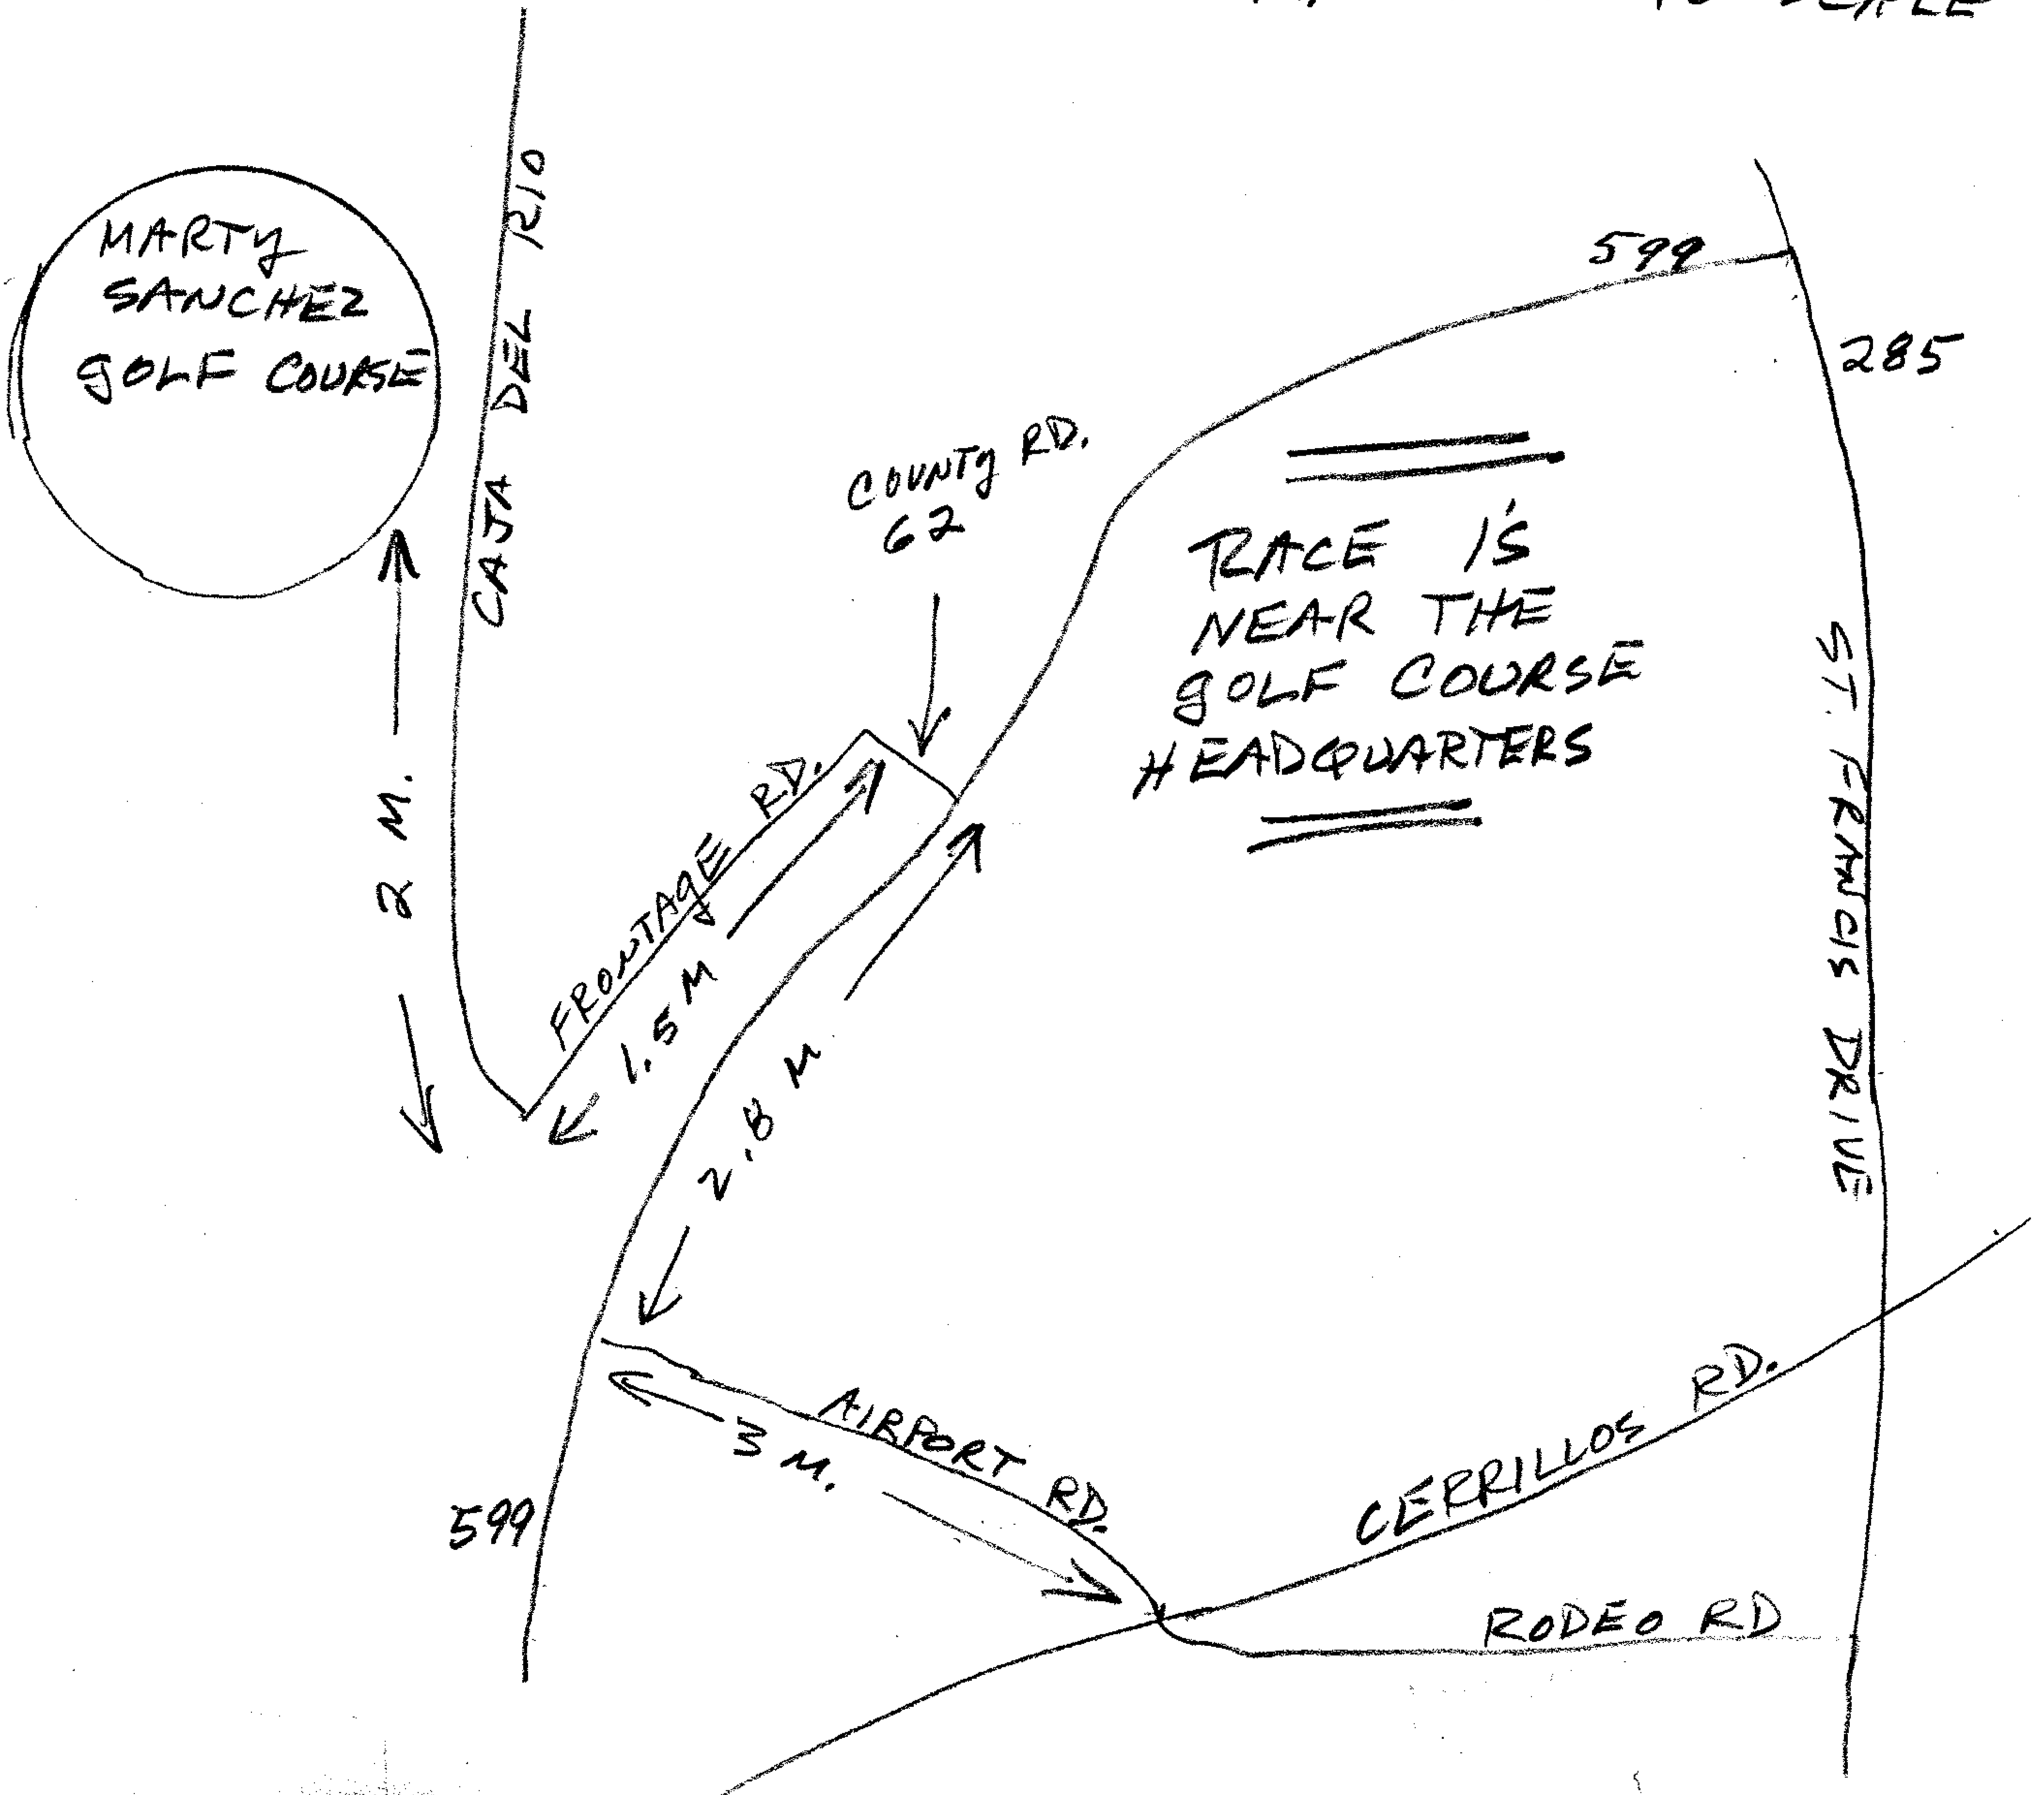 TO SCALE
MARTY
SANCHEZ
GOLF COURSE
CAJA DEL RIO
599
285
COUNTY RD.
62
RACE IS
NEAR THE
GOLF COURSE
HEADQUARTERS
ST. FRANCIS DRIVE
2 M.
FRONTAGE RD.
1.5 M
2.8 M
AIRPORT RD.
3 M.
CERRILLOS RD.
599
RODEO RD